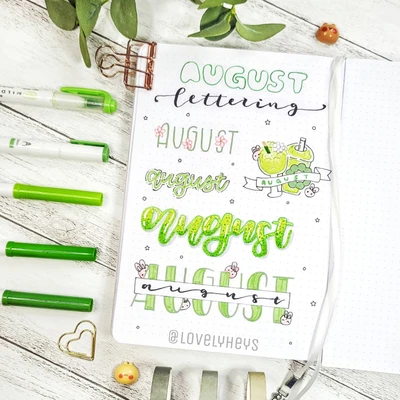 AUGUST
lettering
AUGUST
august
AUGUST
august
AUGUST
august
@LOVELYHEYS